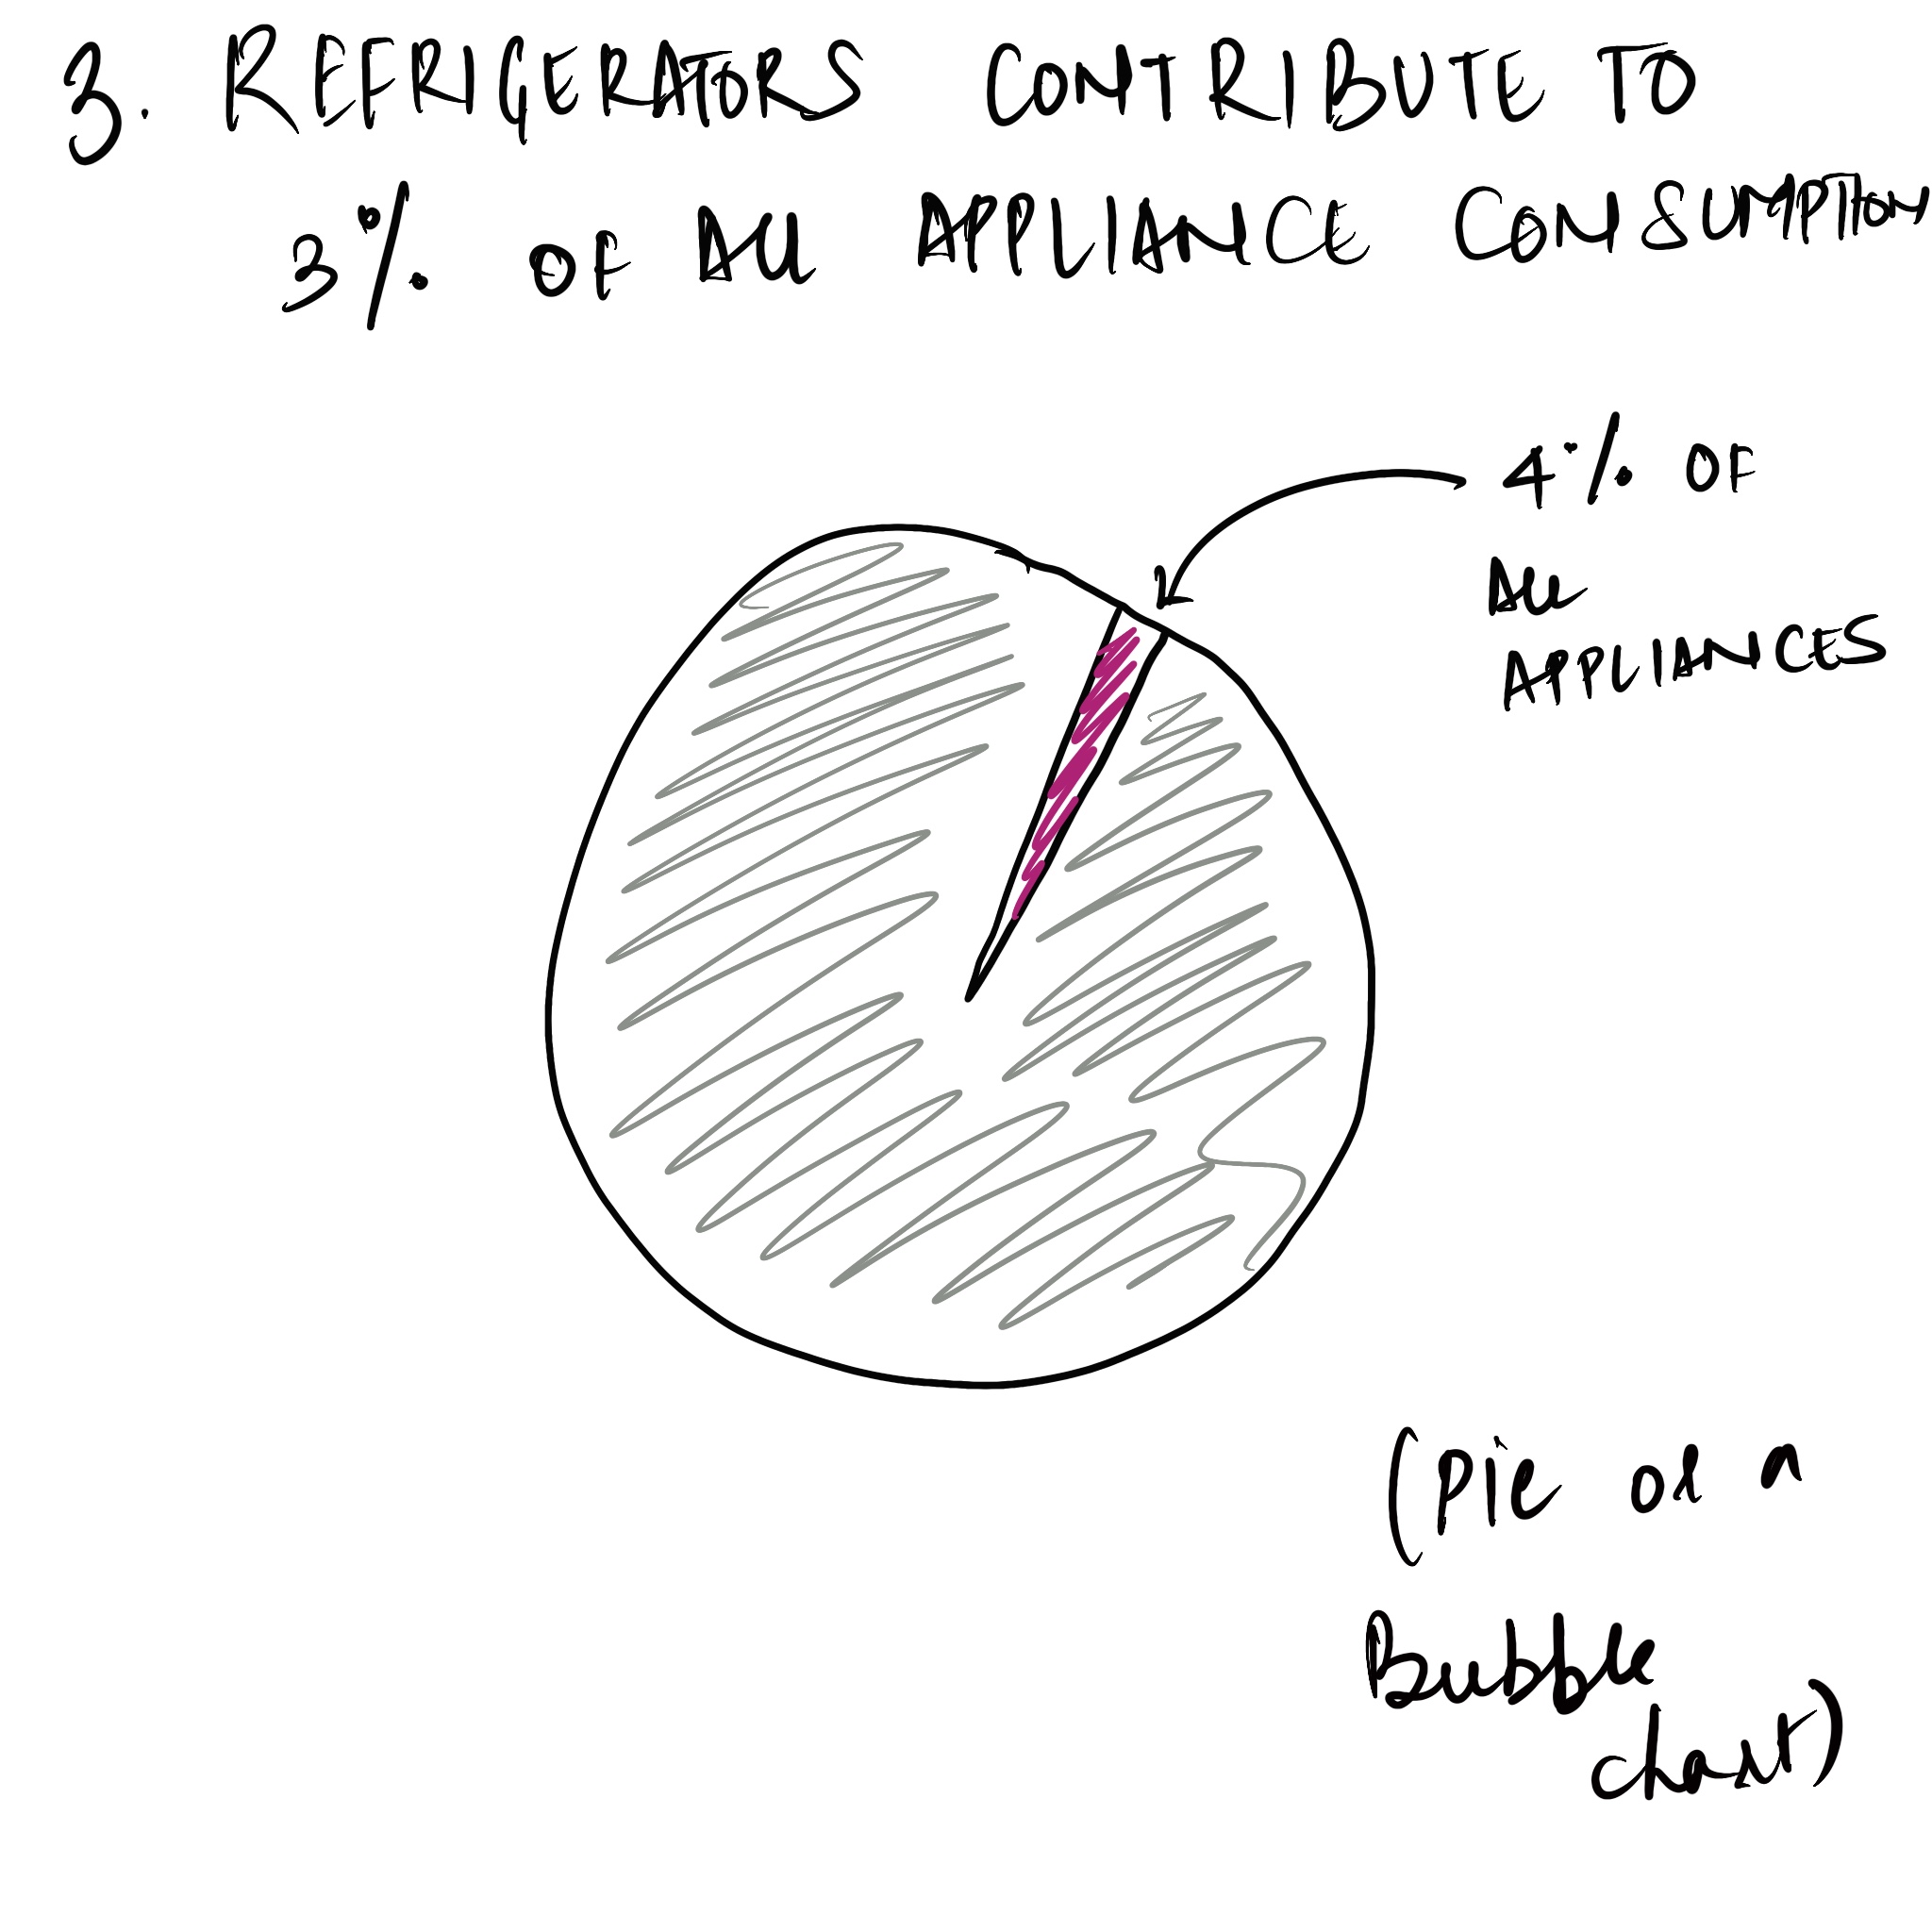 3. REFRIGERATORS CONTRIBUTE TO
3% OF All APPLIANCE CONSUMPTION
4% OF
All
APPLIANCES
(Pie or a
Bubble
chart)